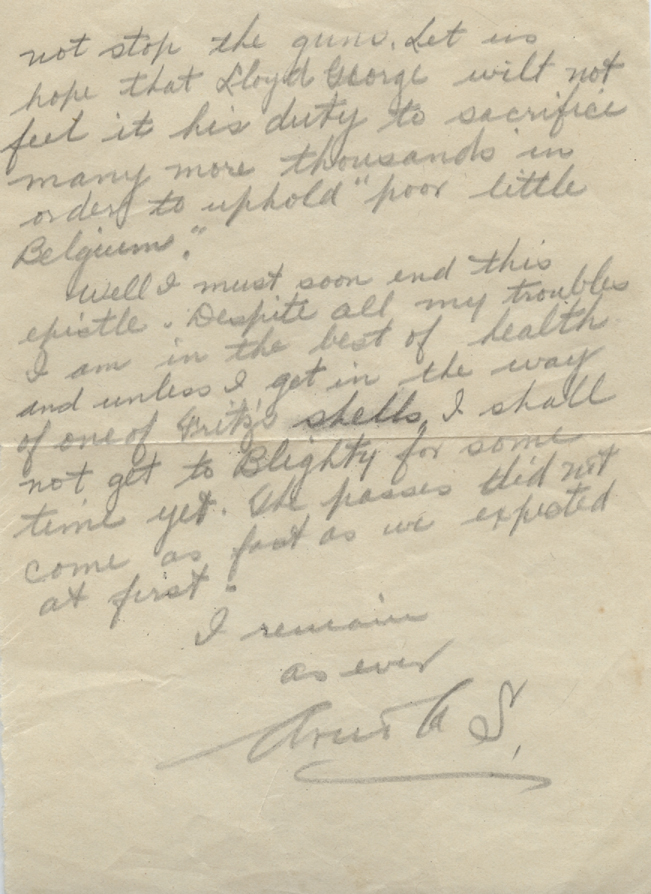 not stop the guns. Let us
hope that Lloyd George wilt not
feel it his duty to sacrifice
many more thousands in
order to uphold "poor little
Belgium."
Well I must soon end this
epistle. Despite all my troubles
I am in the best of health
and unless I get in the way
of one of Fritz's shells, I shall
not get to Blighty for some
time yet. The passes did not
come as fast as we expected
at first.
I remain
as ever
S.